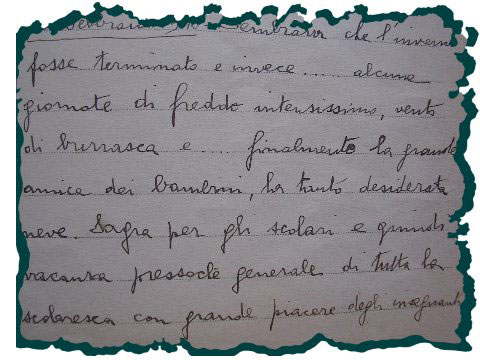 Sembrava che l'inverno
fosse terminato e invece.... alcune
giornate di freddo intensissimo, vento
di burrasca e .... finalmente la grande
amica dei bambini, la tanto desiderata
neve. Sagra per gli scolari e quindi
vacanza pressoché generale di tutta la
scolaresca con grande piacere degli insegnanti